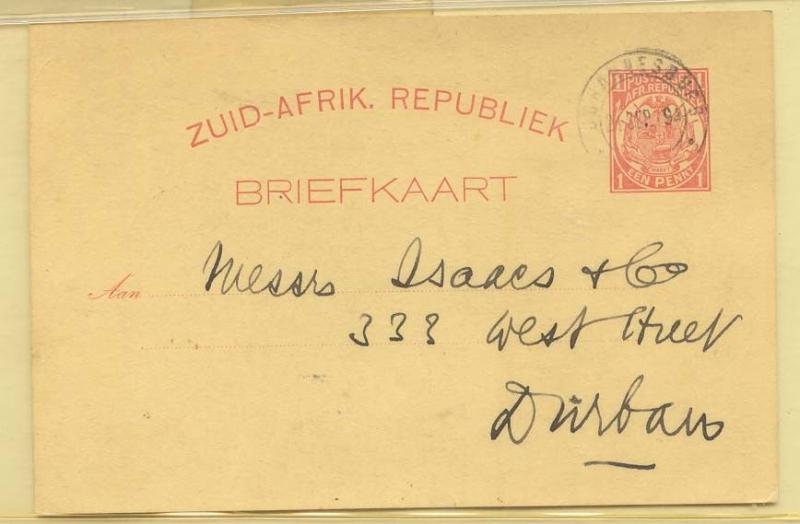 ZUID-AFRIK. REPUBLIEK
BRIEFKAART
JOHANNESBURG
SEP
1 POSTZEGEL 1
Z. AFR. REPUBLIEK
1 EEN PENNY 1
Aan Messrs Isaacs & Co
333 West Street
Durban